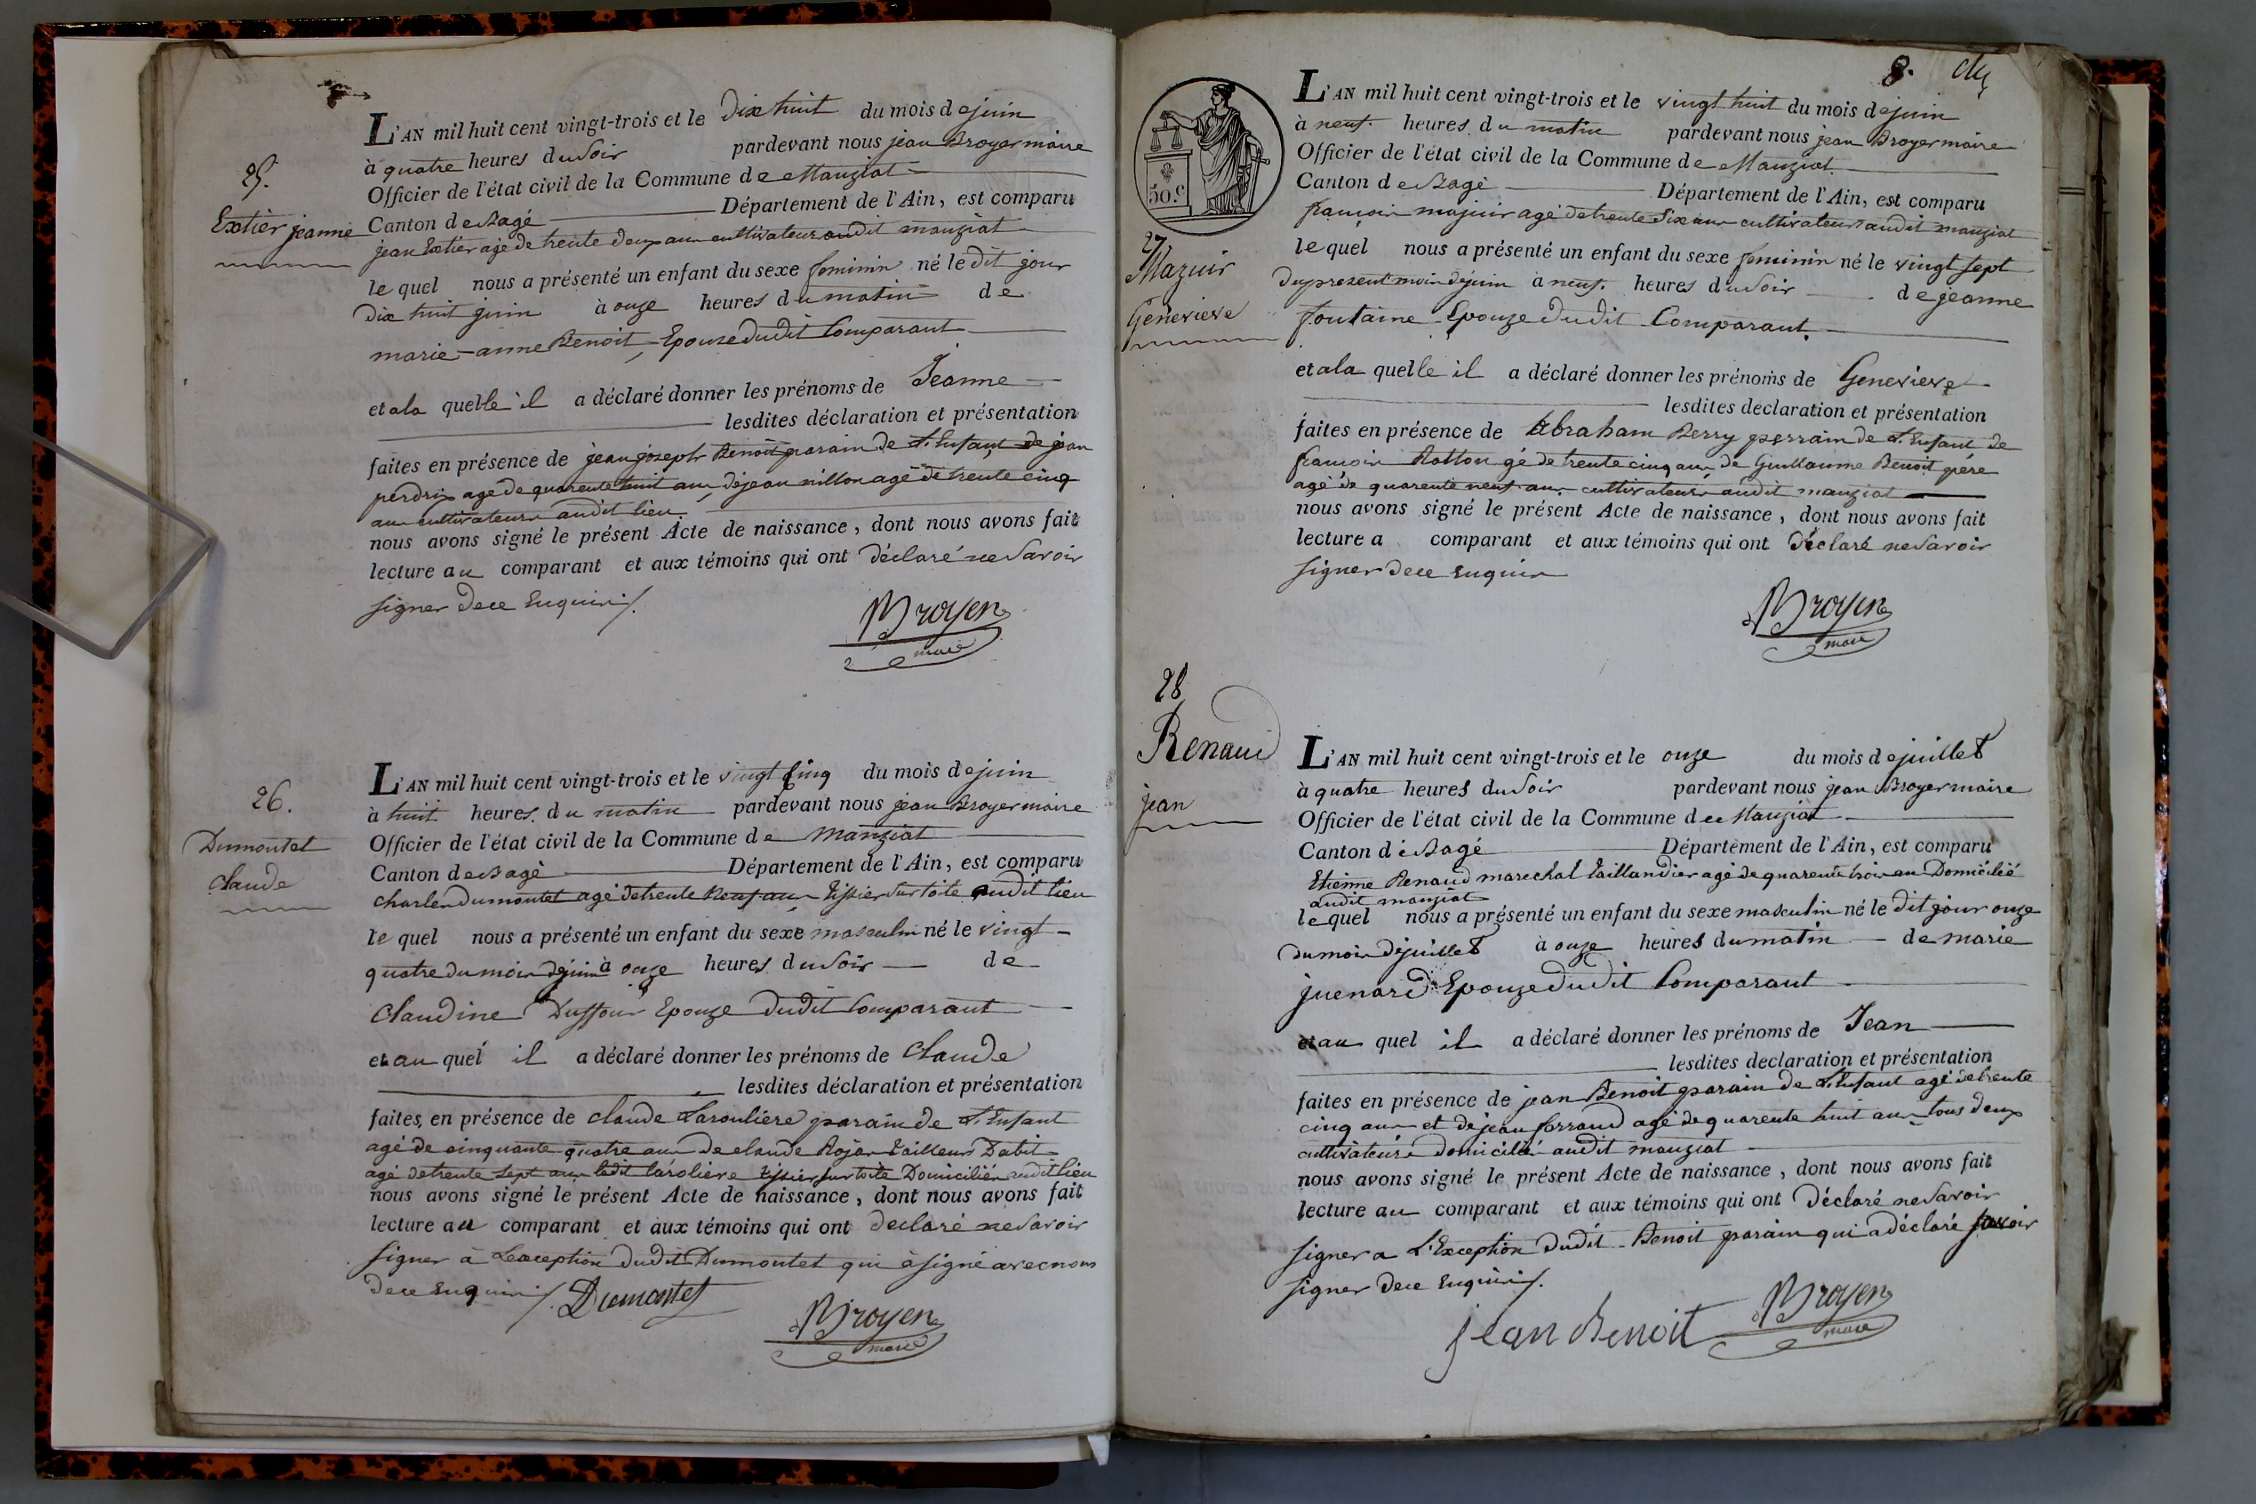 25.
Extier jeanne
L'AN mil huit cent vingt-trois et le Dix huit du mois de juin
à quatre heures du soir pardevant nous jean Broyer maire
Officier de l'état civil de la Commune de Manziat
Canton de Bagé Département de l'Ain, est comparu
jean Extier agé de trente deux ans cultivateur audit manziat
le quel nous a présenté un enfant du sexe feminin né le dit jour
dix huit juin à onze heures du matin de
marie-anne Benoit Epouze dudit Comparant
et a la quelle il a déclaré donner les prénoms de Jeanne
lesdites déclaration et présentation
faites en présence de jean joseph Benoit parain de L'Enfant de jean
perdrix agé de quarente huit ans, de jean millon agé de trente cinq
ans cultivateurs audit lieu.
nous avons signé le présent Acte de naissance, dont nous avons fait
lecture au comparant et aux témoins qui ont Déclaré ne Savoir
signer de ce Enquis /.
Broyer
maire
26.
Dumontet
Claude
L'AN mil huit cent vingt-trois et le vingt Cinq du mois de juin
à huit heures du matin pardevant nous jean Broyer maire
Officier de l'état civil de la Commune de Manziat
Canton de Bagé Département de l'Ain, est comparu
charles Dumontet agé de trente Neuf ans Tissier sur toile audit lieu
le quel nous a présenté un enfant du sexe masculin né le vingt
quatre du mois de juin à onze heures du soir de
Claudine Duffour Epouze dudit Comparant
et au quel il a déclaré donner les prénoms de Claude
lesdites déclaration et présentation
faites en présence de claude Laroulière parain de L'Enfant
agé de cinquante quatre ans de claude Rojan tailleur D'abit
agé de trente sept ans ledit larolière Tissier sur toile Domiciliés audit lieu
nous avons signé le présent Acte de naissance, dont nous avons fait
lecture au comparant et aux témoins qui ont declaré ne Savoir
signer à Lexception dudit Dumontet qui à signé avec nous
de ce Enquis /. Dumontet
Broyer
maire
8.
50 C.
27
Mazuir
Genevieve
L'AN mil huit cent vingt-trois et le vingt huit du mois de juin
à neuf heures du matin pardevant nous jean Broyer maire
Officier de l'état civil de la Commune de Manziat
Canton de Bagé Département de l'Ain, est comparu
françois majuir agé de trente Six ans cultivateur audit manziat
le quel nous a présenté un enfant du sexe feminin né le vingt sept
du present mois de juin à neuf heures du soir de jeanne
fontaine Epouze dudit Comparant
et a la quelle il a déclaré donner les prénoms de Genevieve
lesdites declaration et présentation
faites en présence de Abraham Berry perrain de L'Enfant de
françois Rollon gé de trente cinq ans de Guillaume Benoit père
agé de quarente neuf ans cultivateurs audit manziat
nous avons signé le présent Acte de naissance, dont nous avons fait
lecture a comparant et aux témoins qui ont Déclaré ne Savoir
signer de ce Enquis
Broyer
maire
28
Renaud
jean
L'AN mil huit cent vingt-trois et le onze du mois de juillet
à quatre heures du Soir pardevant nous jean Broyer maire
Officier de l'état civil de la Commune de Manziat
Canton de Bagé Département de l'Ain, est comparu
Etienne Renaud marechal taillandier agé de quarente trois ans Domicilié
audit manziat
le quel nous a présenté un enfant du sexe masculin né le dit jour onze
du mois de juillet à onze heures du matin de marie
juenard Epouze dudit Comparant
et au quel il a déclaré donner les prénoms de Jean
lesdites declaration et présentation
faites en présence de jean Benoit parain de L'Enfant agé de trente
cinq ans et de jean ferrand agé de quarente huit ans tous deux
cultivateurs domiciliés audit manziat
nous avons signé le présent Acte de naissance, dont nous avons fait
lecture au comparant et aux témoins qui ont Déclaré ne Savoir
signer a L'Exception dudit Benoit parain qui a déclaré savoir
signer de ce Enquis /.
jean Benoit
Broyer
maire